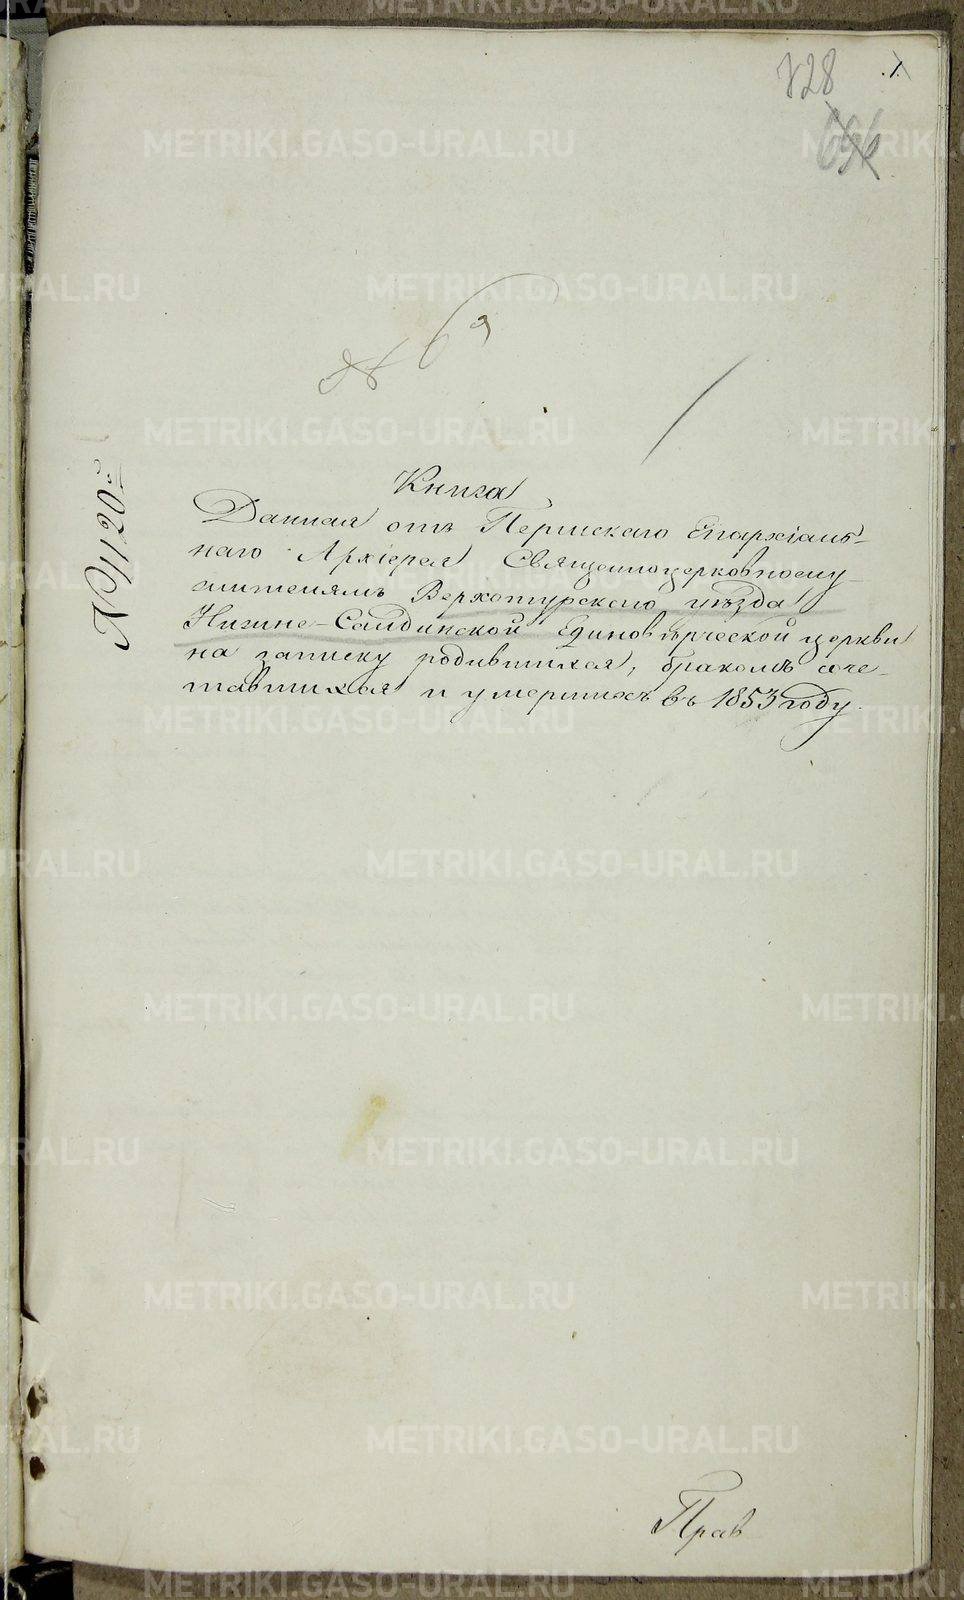 828
1.
696
№ 1120й
Книга
Данная отъ Пермскаго Епархіаль-
наго Архіерея Священноцерковнослу-
жителямъ Верхотурскаго уѣзда
Нижне-Салдинской Единовѣрческой церкви
на записку родившихся, бракомъ соче-
тавшихся и умершихъ въ 1853 году.
Прав
METRIKI.GASO-URAL.RU